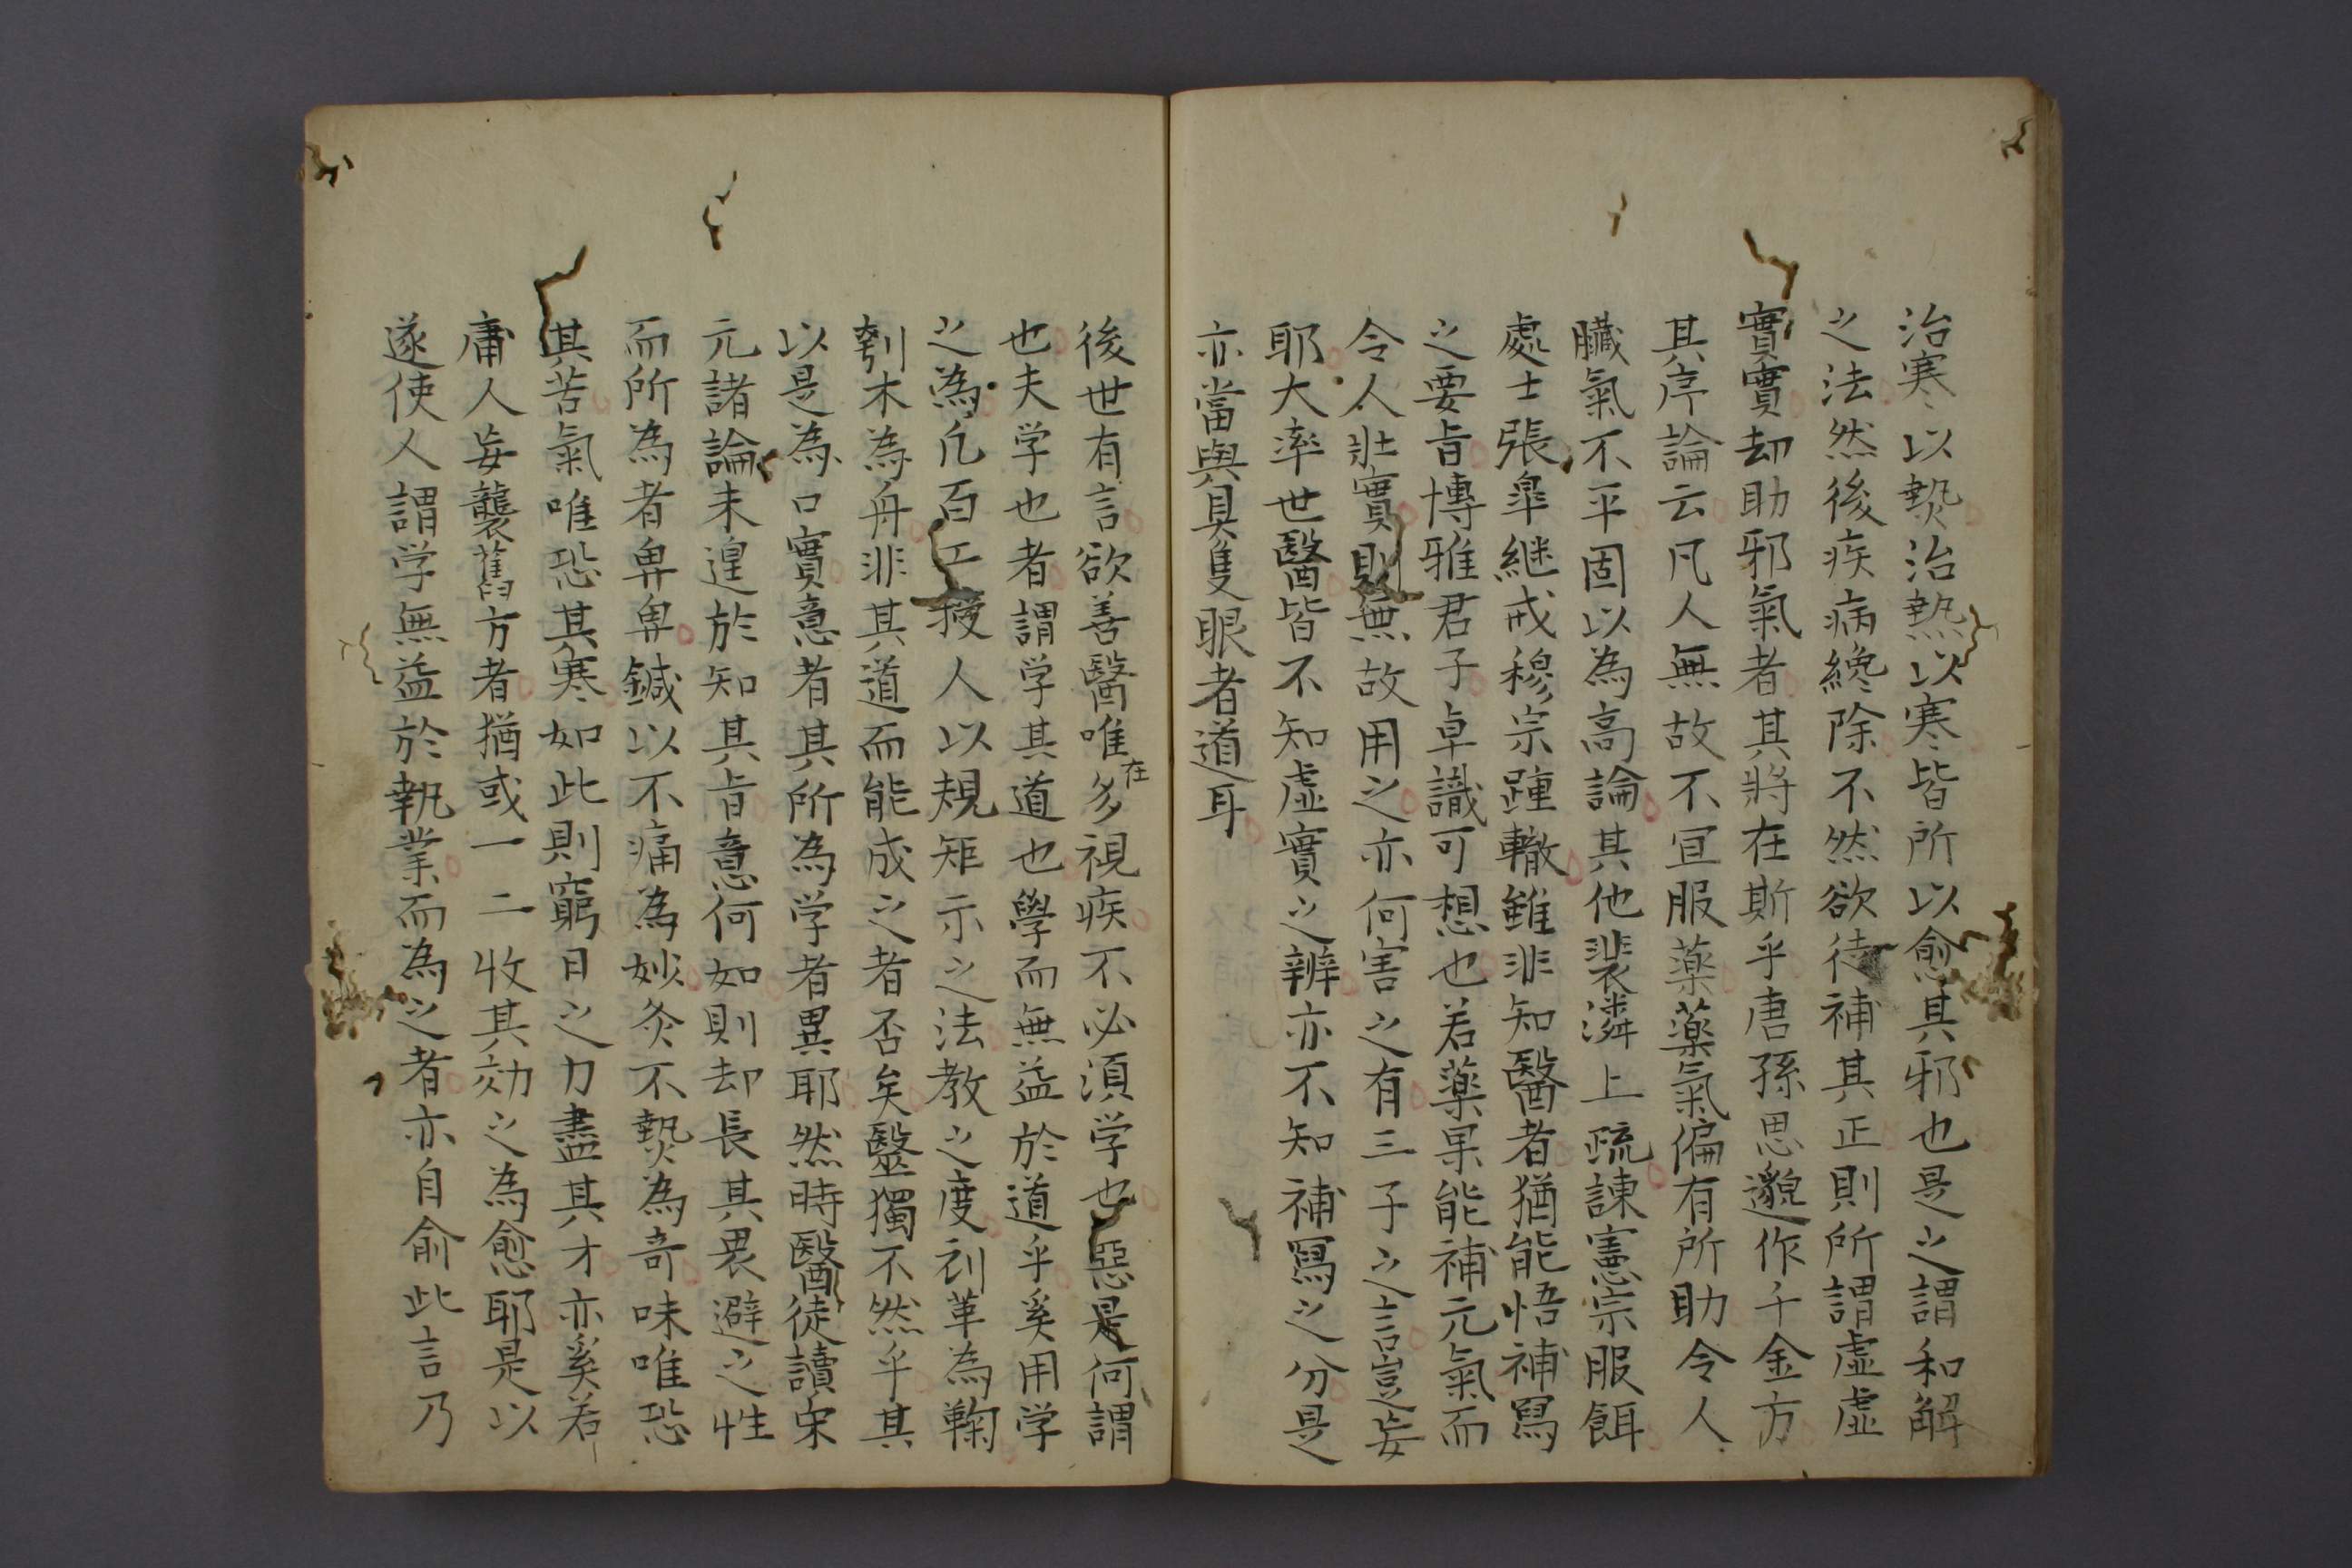 治寒以熱治熱以寒皆所以愈其邪也是之謂和解
之法然後疾病纔除不然欲待補其正則所謂虛虛
實實却助邪氣者其將在斯乎唐孫思邈作千金方
其序論云凡人無故不宜服藥藥氣偏有所助令人
臟氣不平固以為高論其他裴潾上疏諫憲宗服餌
處士張皐継戒穆宗踵轍雖非知醫者猶能悟補冩
之要旨博雅君子卓識可想也若藥果能補元氣而
令人壯實則無故用之亦何害之有三子之言豈妄
耶大率世醫皆不知虛實之辨亦不知補冩之分是
亦當與具隻眼者道耳
後世有言欲善醫唯在多視疾不必須学也惡是何謂
也夫学也者謂学其道也學而無益於道乎奚用学
之為凡百工授人以規矩示之法教之度刹革為鞠
刳木為舟非其道而能成之者否矣醫獨不然乎其
以是為口實意者其所為学者異耶然時醫徒讀宋
元諸論未遑於知其旨意何如則却長其畏避之性
而所為者卑卑鍼以不痛為妙灸不熱為奇味唯恐
其苦氣唯恐其寒如此則窮日之力盡其才亦奚若
庸人妄襲舊方者猶或一二收其効之為愈耶是以
遂使人謂学無益於執業而為之者亦自俞此言乃